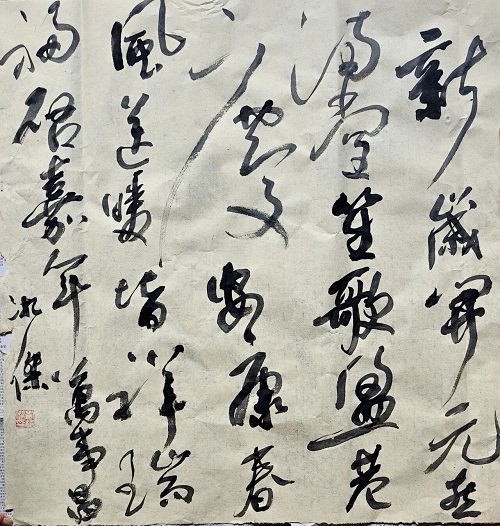 新歲開元喜
滿堂笙歌盈巷
慶安康春
風送暖皆祥瑞
福启嘉年萬事昌
冰傑